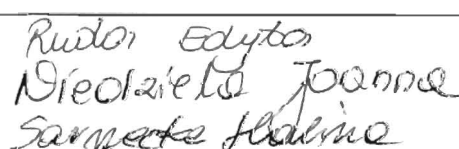 Ruda Edyta
Niedziela Joanna
Sarnecka Halina